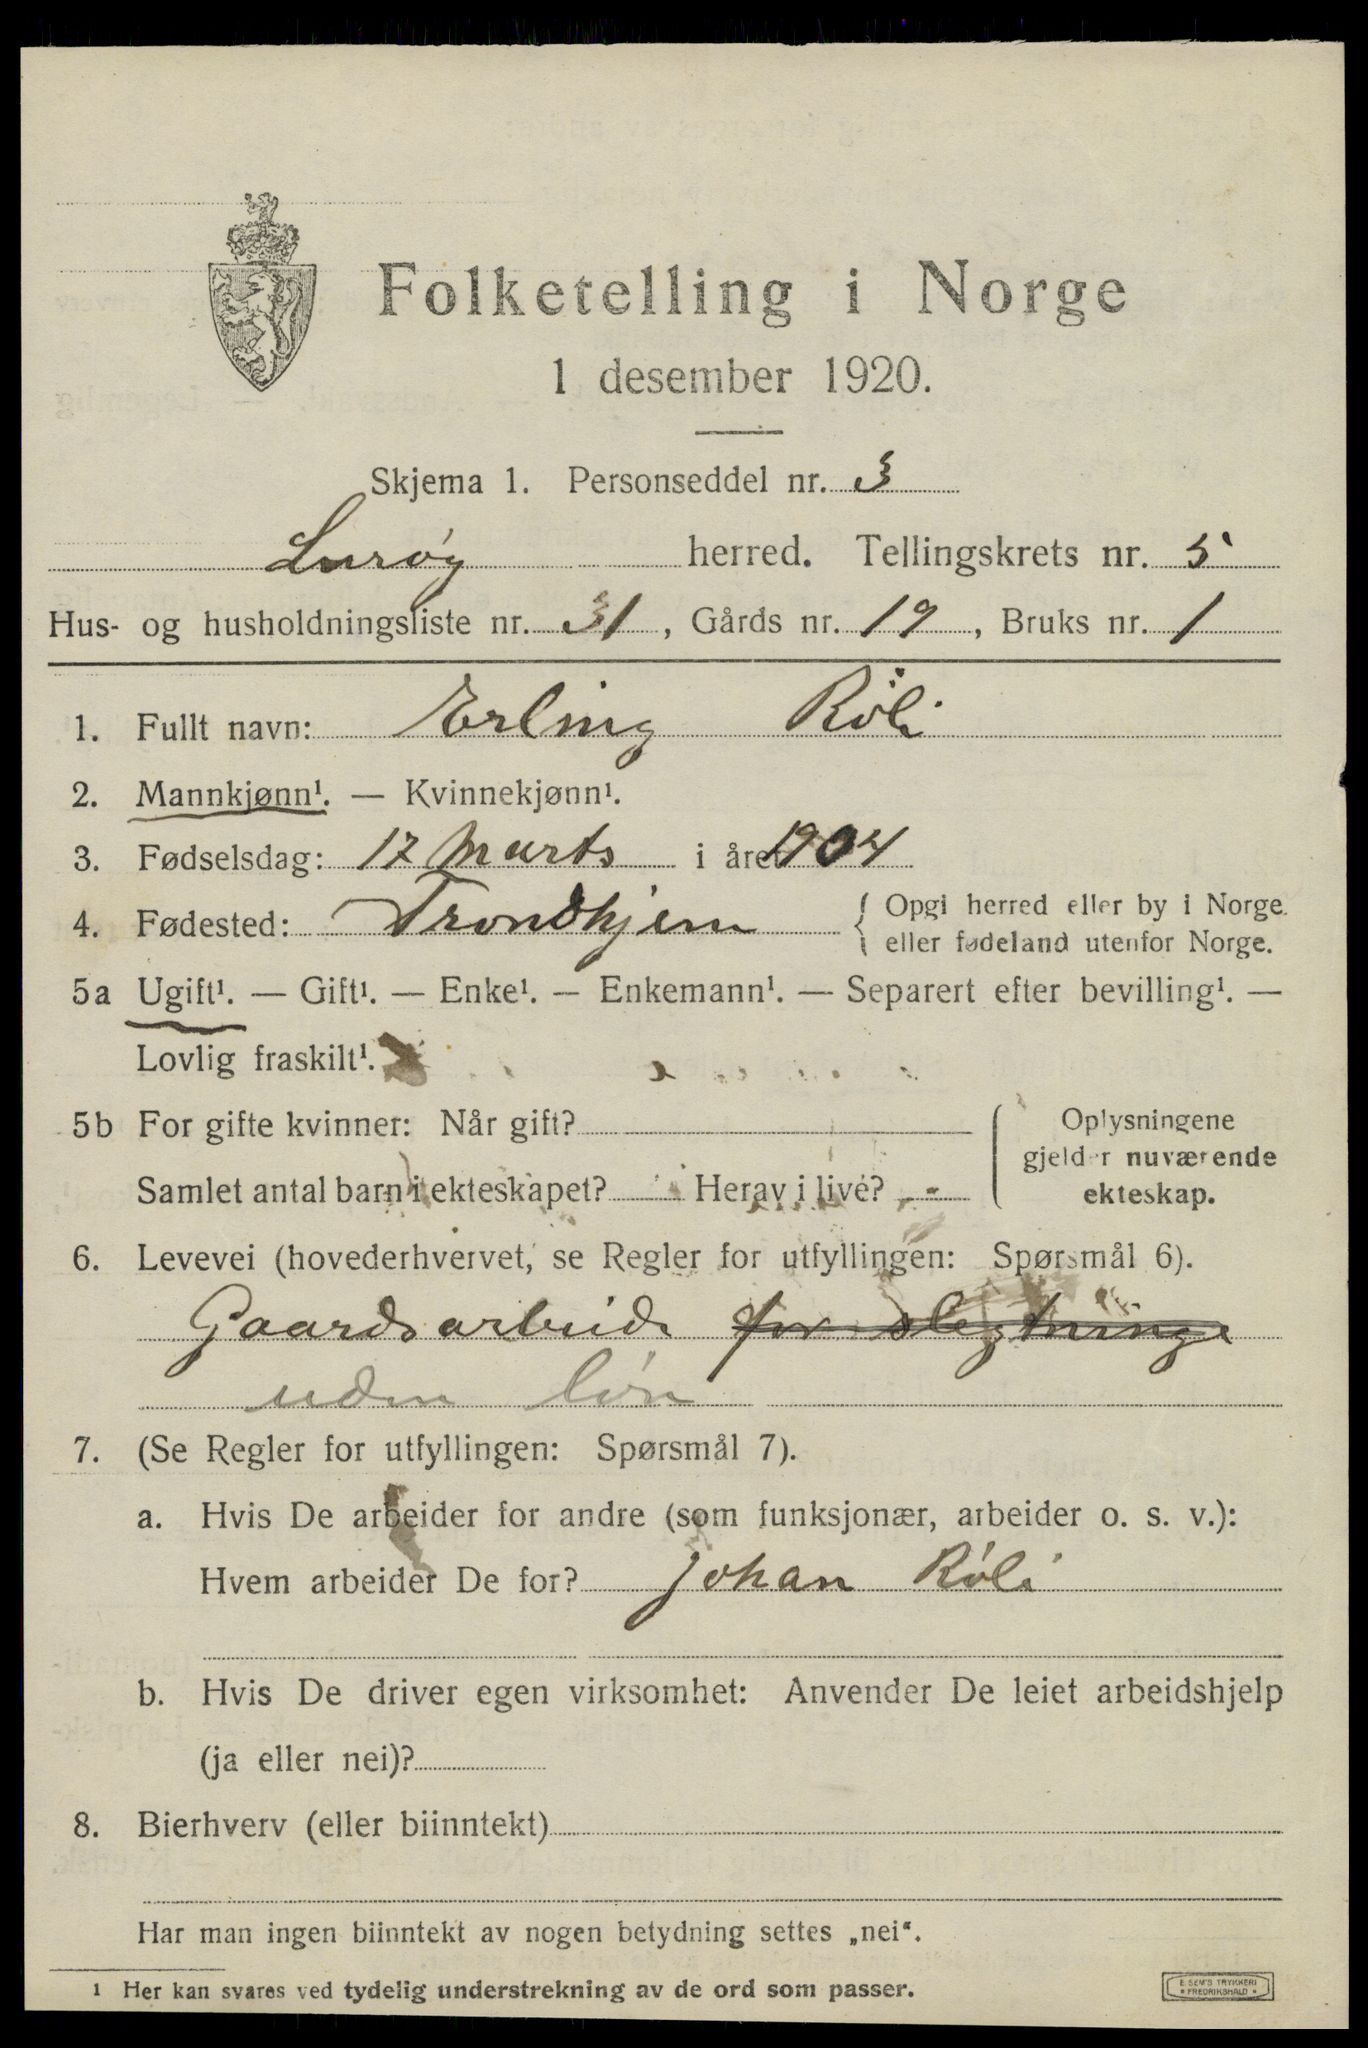 Folketelling i Norge
1 desember 1920.
Skjema 1. Personseddel nr. 3
Lurøy herred. Tellingskrets nr. 5
Hus- og husholdningsliste nr. 31, Gårds nr. 19, Bruks nr. 1
1. Fullt navn: Erling Røli
2. Mannkjønn¹. — Kvinnekjønn¹.
3. Fødselsdag: 17 Marts i året 1904
4. Fødested: Trondhjem { Opgi herred eller by i Norge eller fødeland utenfor Norge.
5a Ugift¹. — Gift¹. — Enke¹. — Enkemann¹. — Separert efter bevilling¹. —
Lovlig fraskilt¹.
5b For gifte kvinner: Når gift?
Samlet antal barn i ekteskapet? Herav i live?
Oplysningene
gjelder nuværende
ekteskap.
6. Levevei (hovederhvervet, se Regler for utfyllingen: Spørsmål 6).
Gaardsarbeide for slegtninge
uden løn
7. (Se Regler for utfyllingen: Spørsmål 7).
a. Hvis De arbeider for andre (som funksjonær, arbeider o. s. v.):
Hvem arbeider De for? Johan Røli
b. Hvis De driver egen virksomhet: Anvender De leiet arbeidshjelp
(ja eller nei)?
8. Bierhverv (eller biinntekt)
Har man ingen biinntekt av nogen betydning settes „nei“.
1 Her kan svares ved tydelig understrekning av de ord som passer.
E. SEM'S TRYKKERI
* FREDRIKSHALD *